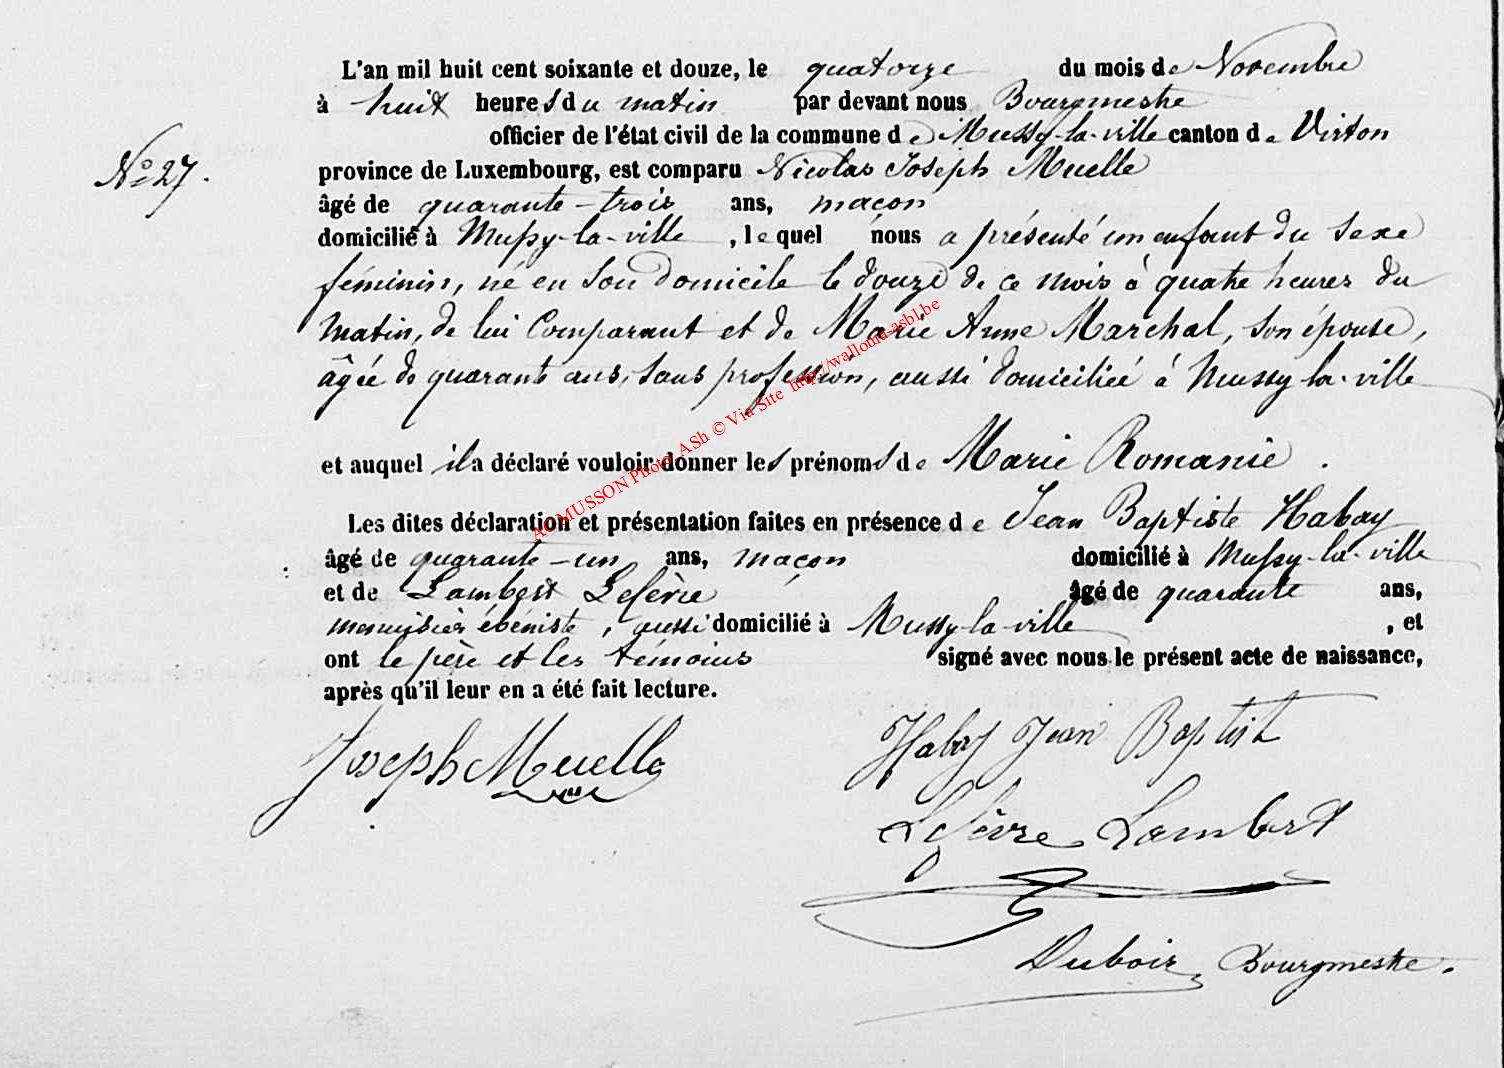 L'an mil huit cent soixante et douze, le quatorze du mois de Novembre
à huit heures du matin par devant nous Bourgmestre
officier de l'état civil de la commune de Mussy-la-ville canton de Virton
N° 27.
province de Luxembourg, est comparu Nicolas Joseph Muelle
âgé de quarante-trois ans, maçon
domicilié à Mussy-la-ville, lequel nous a présenté un enfant du sexe
féminin, né en son domicile le douze de ce mois à quatre heures du
matin, de lui Comparant et de Marie Anne Marchal, son épouse,
âgée de quarante ans, sans profession, aussi domiciliée à Mussy-la-ville
et auquel il a déclaré vouloir donner les prénoms de Marie Romanie.
Les dites déclaration et présentation faites en présence de Jean Baptiste Habay
âgé de quarante-un ans, maçon domicilié à Mussy-la-ville
et de Lambert Lefèvre âgé de quarante ans,
menuisier ébéniste, aussi domicilié à Mussy-la-ville, et
ont le père et les témoins signé avec nous le présent acte de naissance,
après qu'il leur en a été fait lecture.
Joseph Muelle
Habay Jean Baptist
Lefèvre Lambert
Dubois, Bourgmestre.
AC MUSSON Photo ASh © Via Site http://wallonia-asbl.be